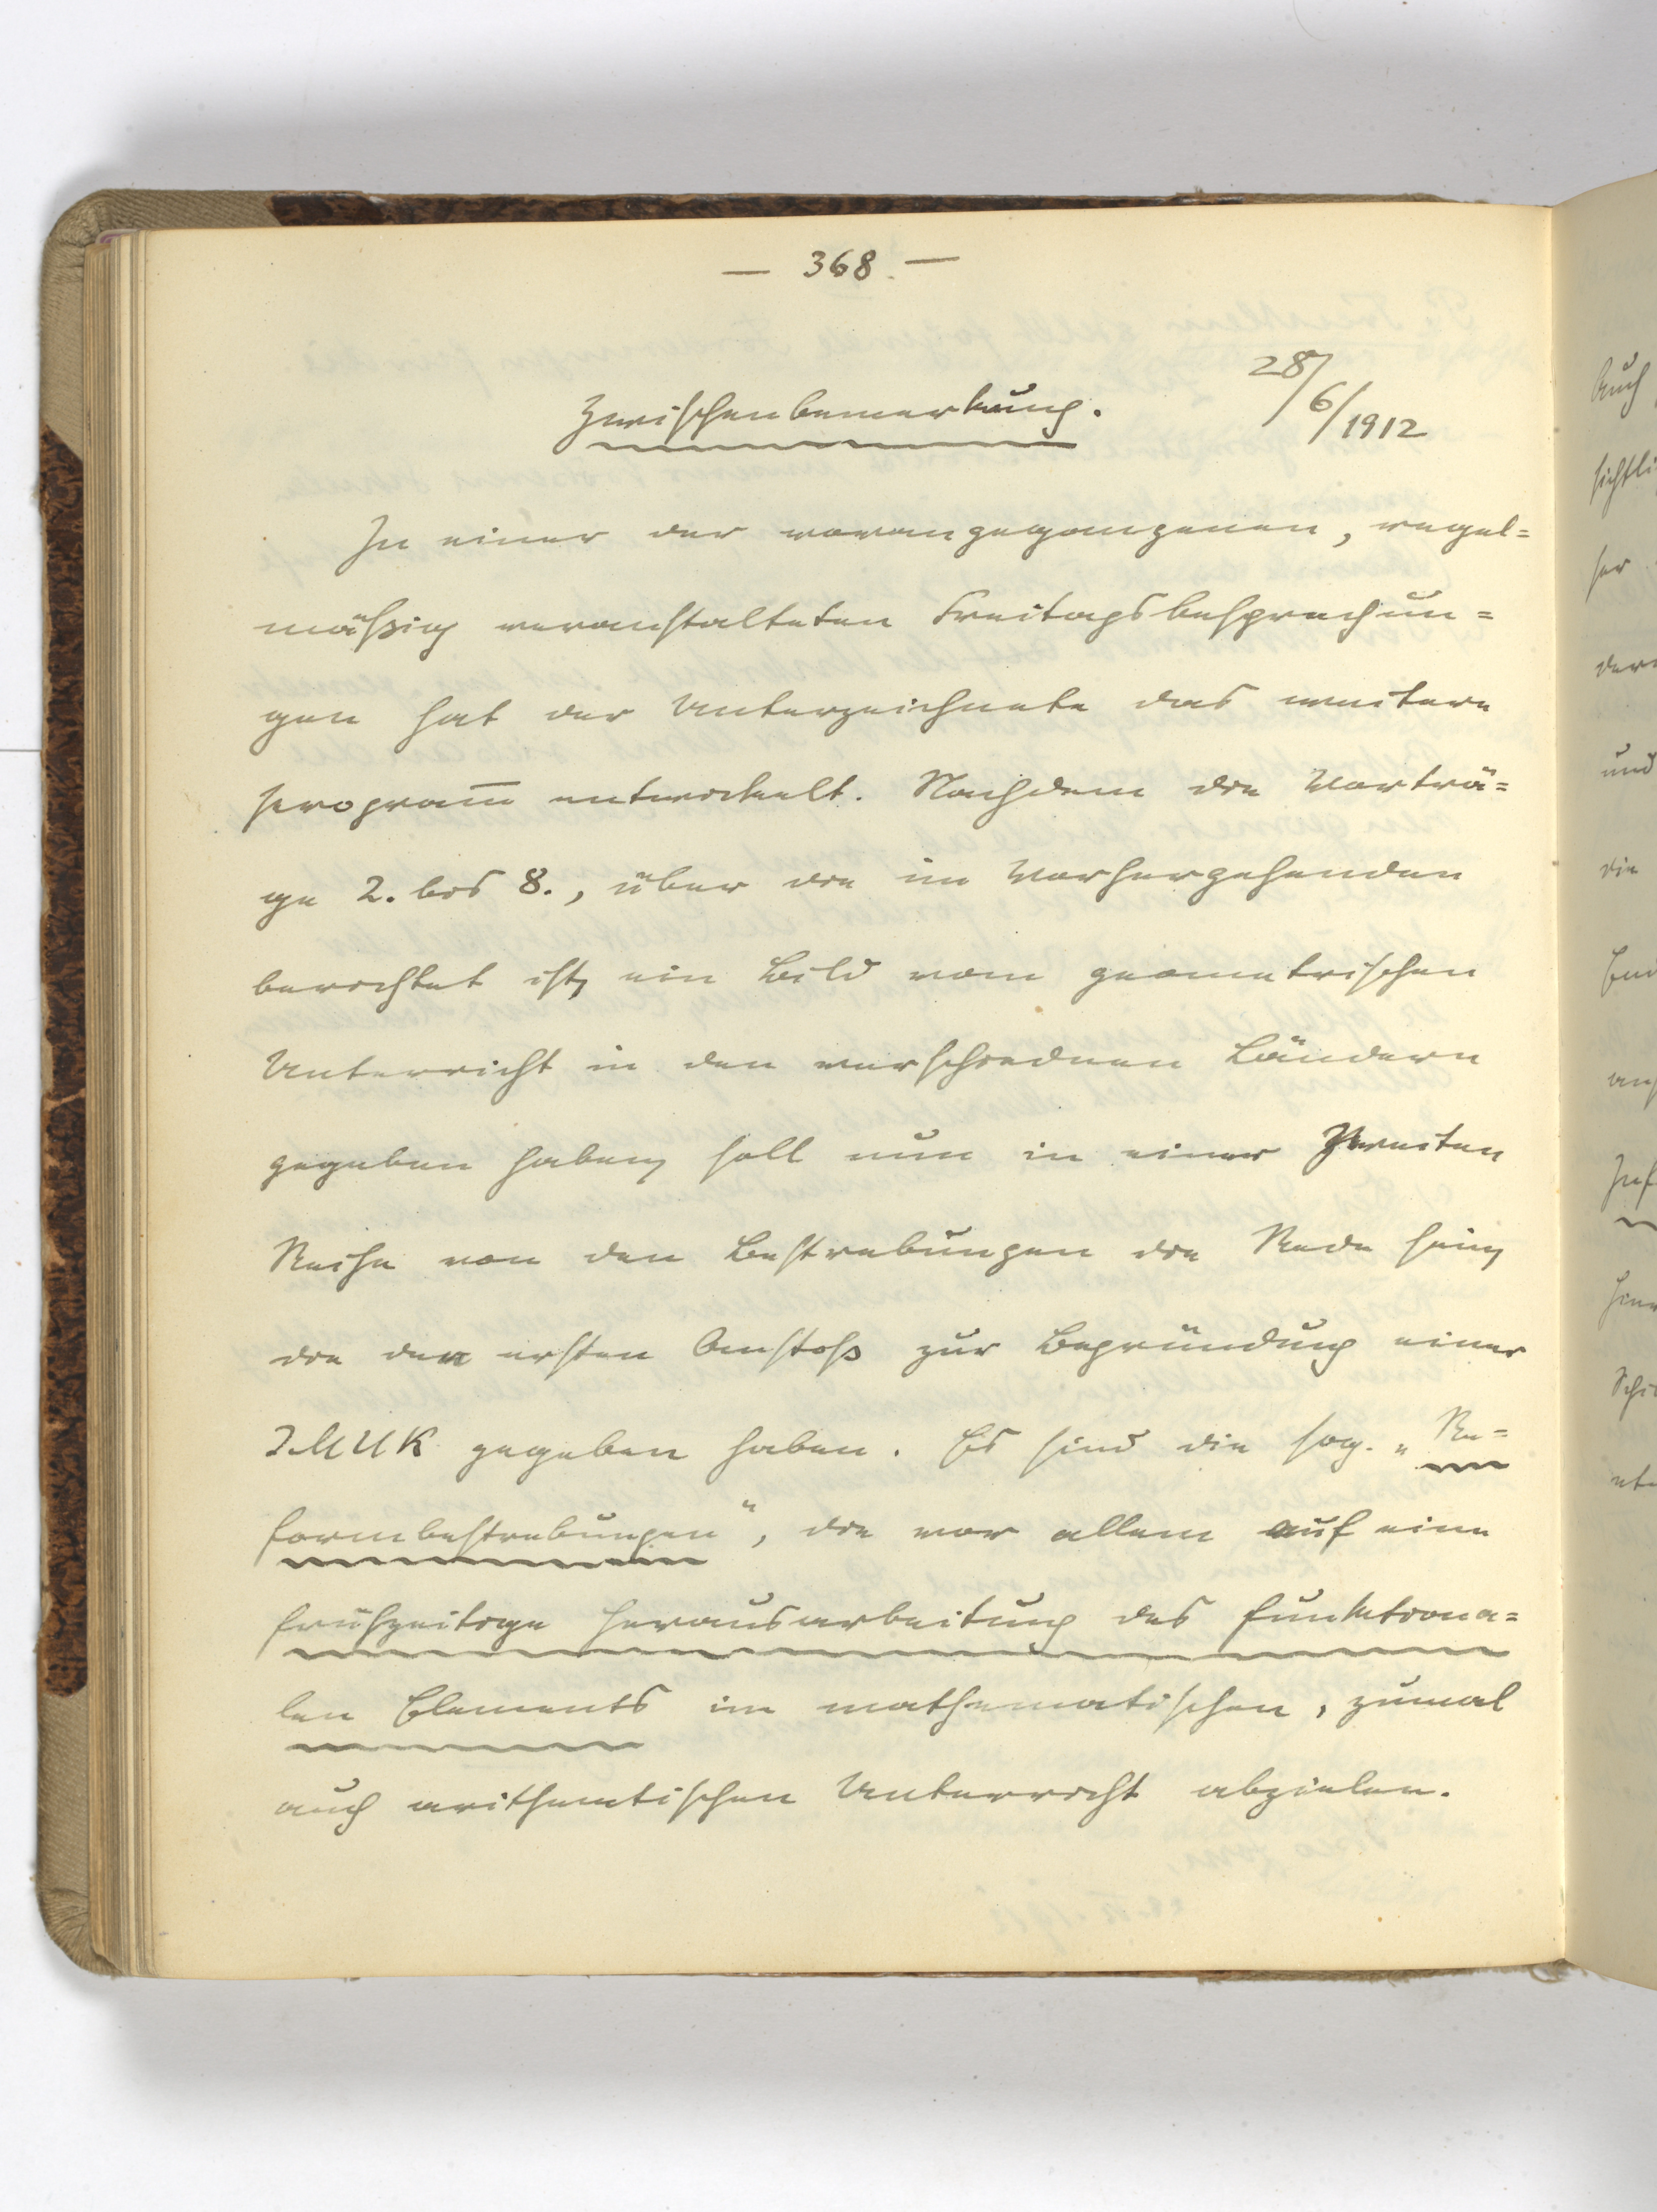 — 368. —
28/6/1912
Zwischenbemerkung.
In einer der vorangegangenen, regel=
mäßig veranstalteten Freitagsbesprechun=
gen hat der Unterzeichnete das weitere
Program̅ entwickelt. Nachdem die Vorträ=
ge 2. bis 8., über die im Vorhergehenden
berichtet ist, ein Bild vom geometrischen
Unterricht in den verschiednen Ländern
gegeben haben, soll nun in einer zweiten
Reihe von den Bestrebungen die Rede sein,
die den ersten Anstoß zur Begründung einer
IMUK gegeben haben. Es sind die sog. „Re=
formbestrebungen“, die vor allem auf eine
frühzeitige Herausarbeitung des funktiona=
len Elements im mathematischen, zumal
auch arithmetischen Unterricht abzielen.
Auch
und
die